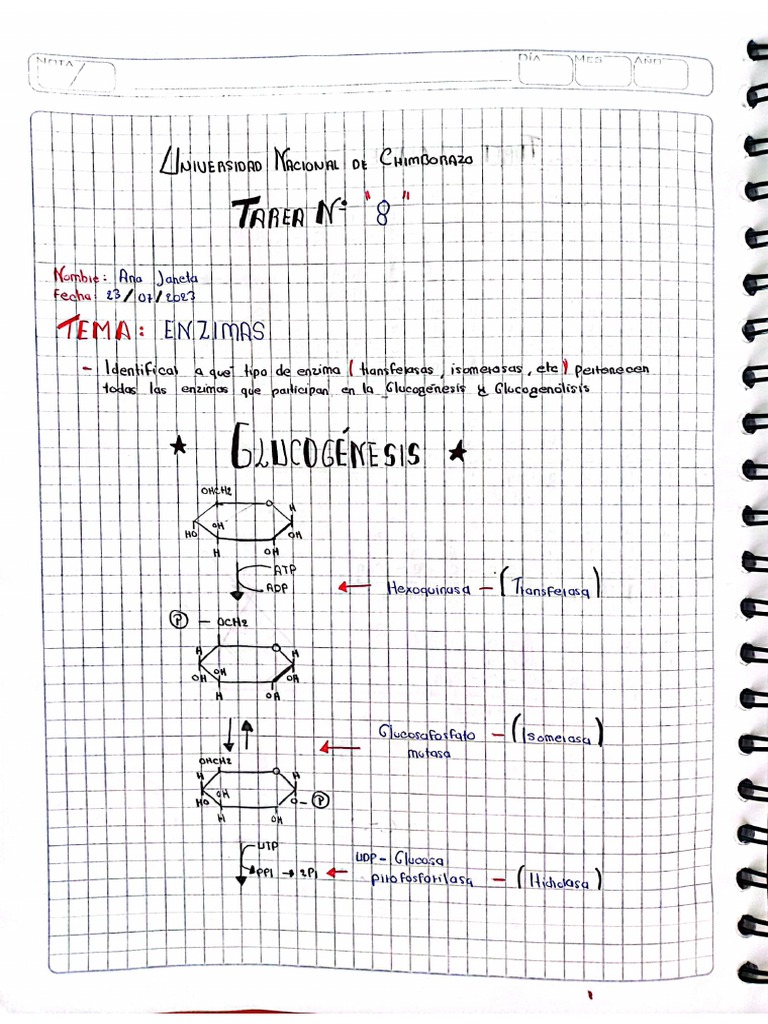 NOTA
DÍA MES AÑO
UNIVERSIDAD NACIONAL DE CHIMBORAZO
TAREA Nº "8"
Nombre: Ana Janeta
Fecha: 23/07/2023
TEMA: ENZIMAS
- Identificar a que tipo de enzima (transferasas, isomerasas, etc) pertenecen
todas las enzimas que participan en la Glucogénesis y Glucogenólisis
★ GLUCOGÉNESIS ★
OHCH2
O H
HO OH OH
H OH
ATP
ADP
Hexoquinasa - (Transferasa)
P - OCH2
H O H
OH OH OH
H OH
Glucosafosfato - (Isomerasa)
mutasa
OHCH2
H O H
HO OH O - P
H OH
UTP
PPi → 2Pi
UDP - Glucosa
pirofosforilasa - (Hidrolasa)